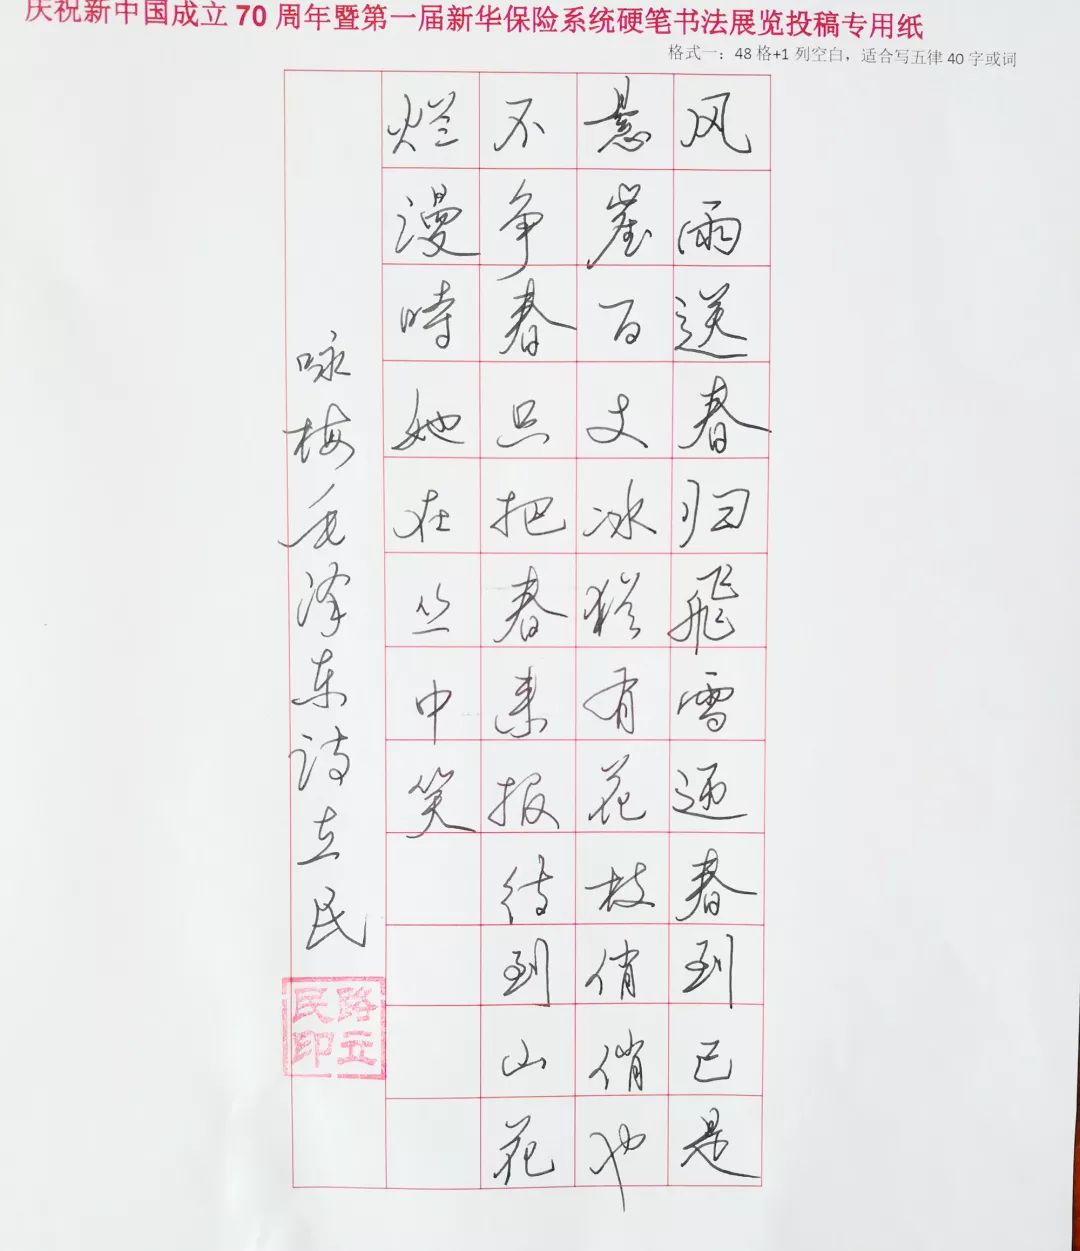 庆祝新中国成立70周年暨第一届新华保险系统硬笔书法展览投稿专用纸
格式一：48格+1列空白，适合写五律40字或词
风雨送春归飛雪迎春到已是
悬崖百丈冰犹有花枝俏俏也
不争春只把春来报待到山花
烂漫時她在丛中笑
咏梅毛泽东诗立民
路立民印